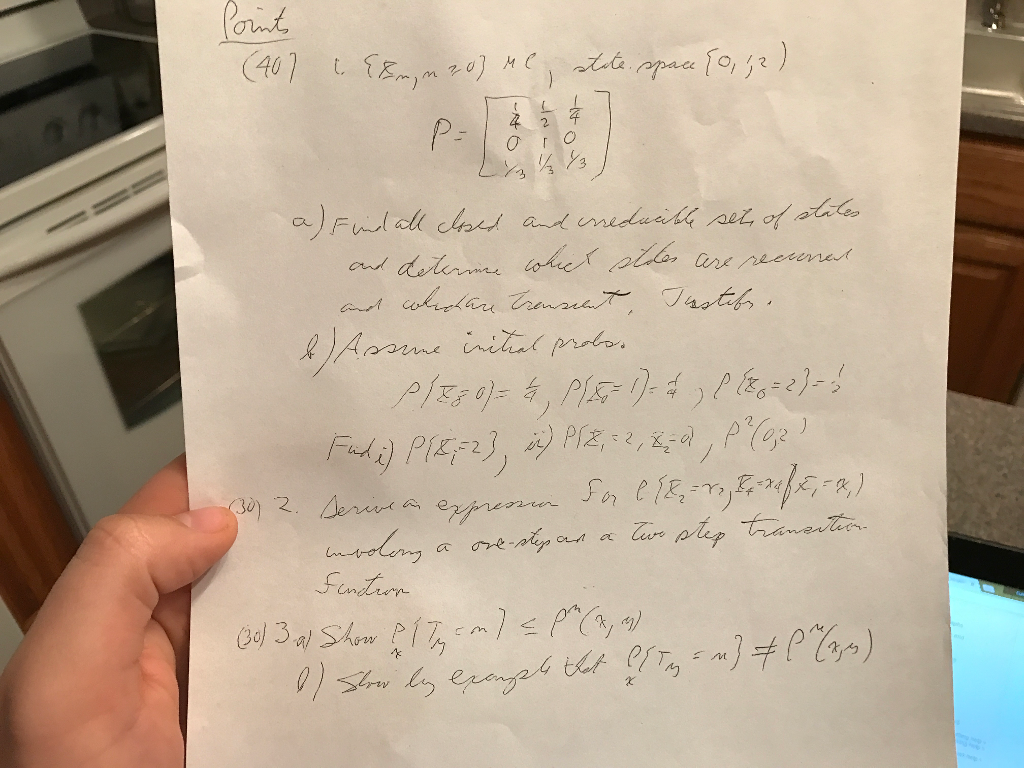 Points
(40) 1. {X_n, n ≥ 0} MC, state space {0, 1, 2}
P = [ 1/4 1/2 1/4
0 1 0
1/3 1/3 1/3 ]
a) Find all closed and irreducible sets of states
and determine which states are recurrent
and which are transient. Justify.
b) Assume initial probs.
P{X_0 = 0} = 1/4, P{X_0 = 1} = 1/4, P{X_0 = 2} = 1/2
Find i) P{X_1 = 2}, ii) P{X_1 = 2, X_2 = 0}, P²(0, 2)
(30) 2. Derive an expression for P{X_2 = x_2, X_4 = x_4 | X_1 = x_1}
involving a one-step and a two step transition
function
(30) 3. a) Show P_x{T_y = n} ≤ P^n(x, y)
b) Show by example that P_x{T_y = n} ≠ P^n(x, y)